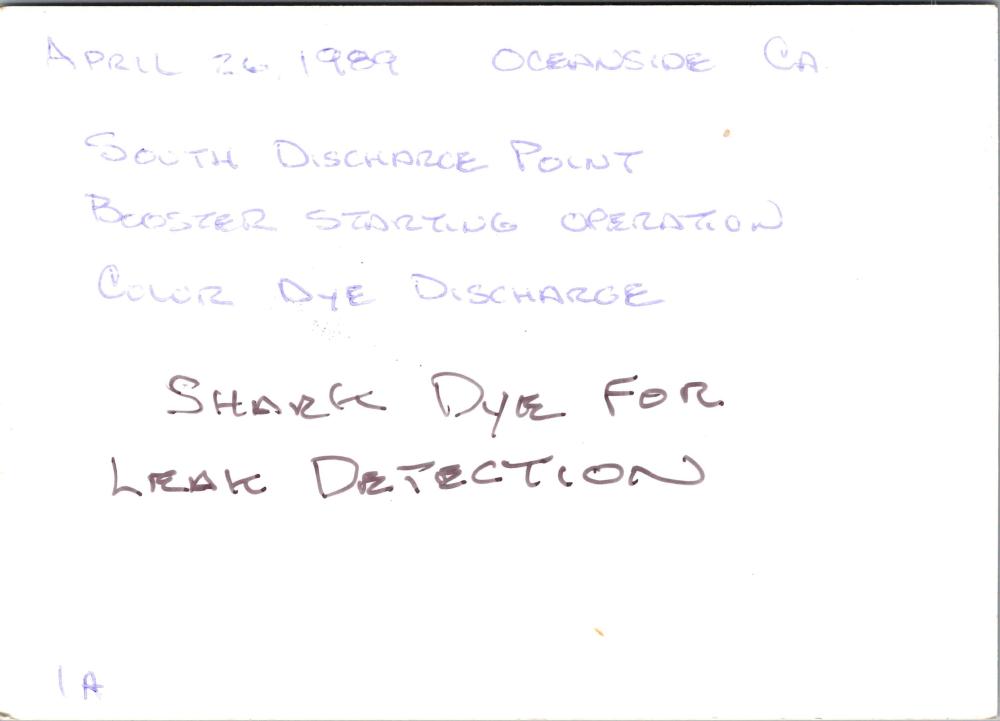 APRIL 26, 1989 OCEANSIDE CA.
SOUTH DISCHARGE POINT
BOOSTER STARTING OPERATION
COLOR DYE DISCHARGE
SHARK DYE FOR
LEAK DETECTION
1A